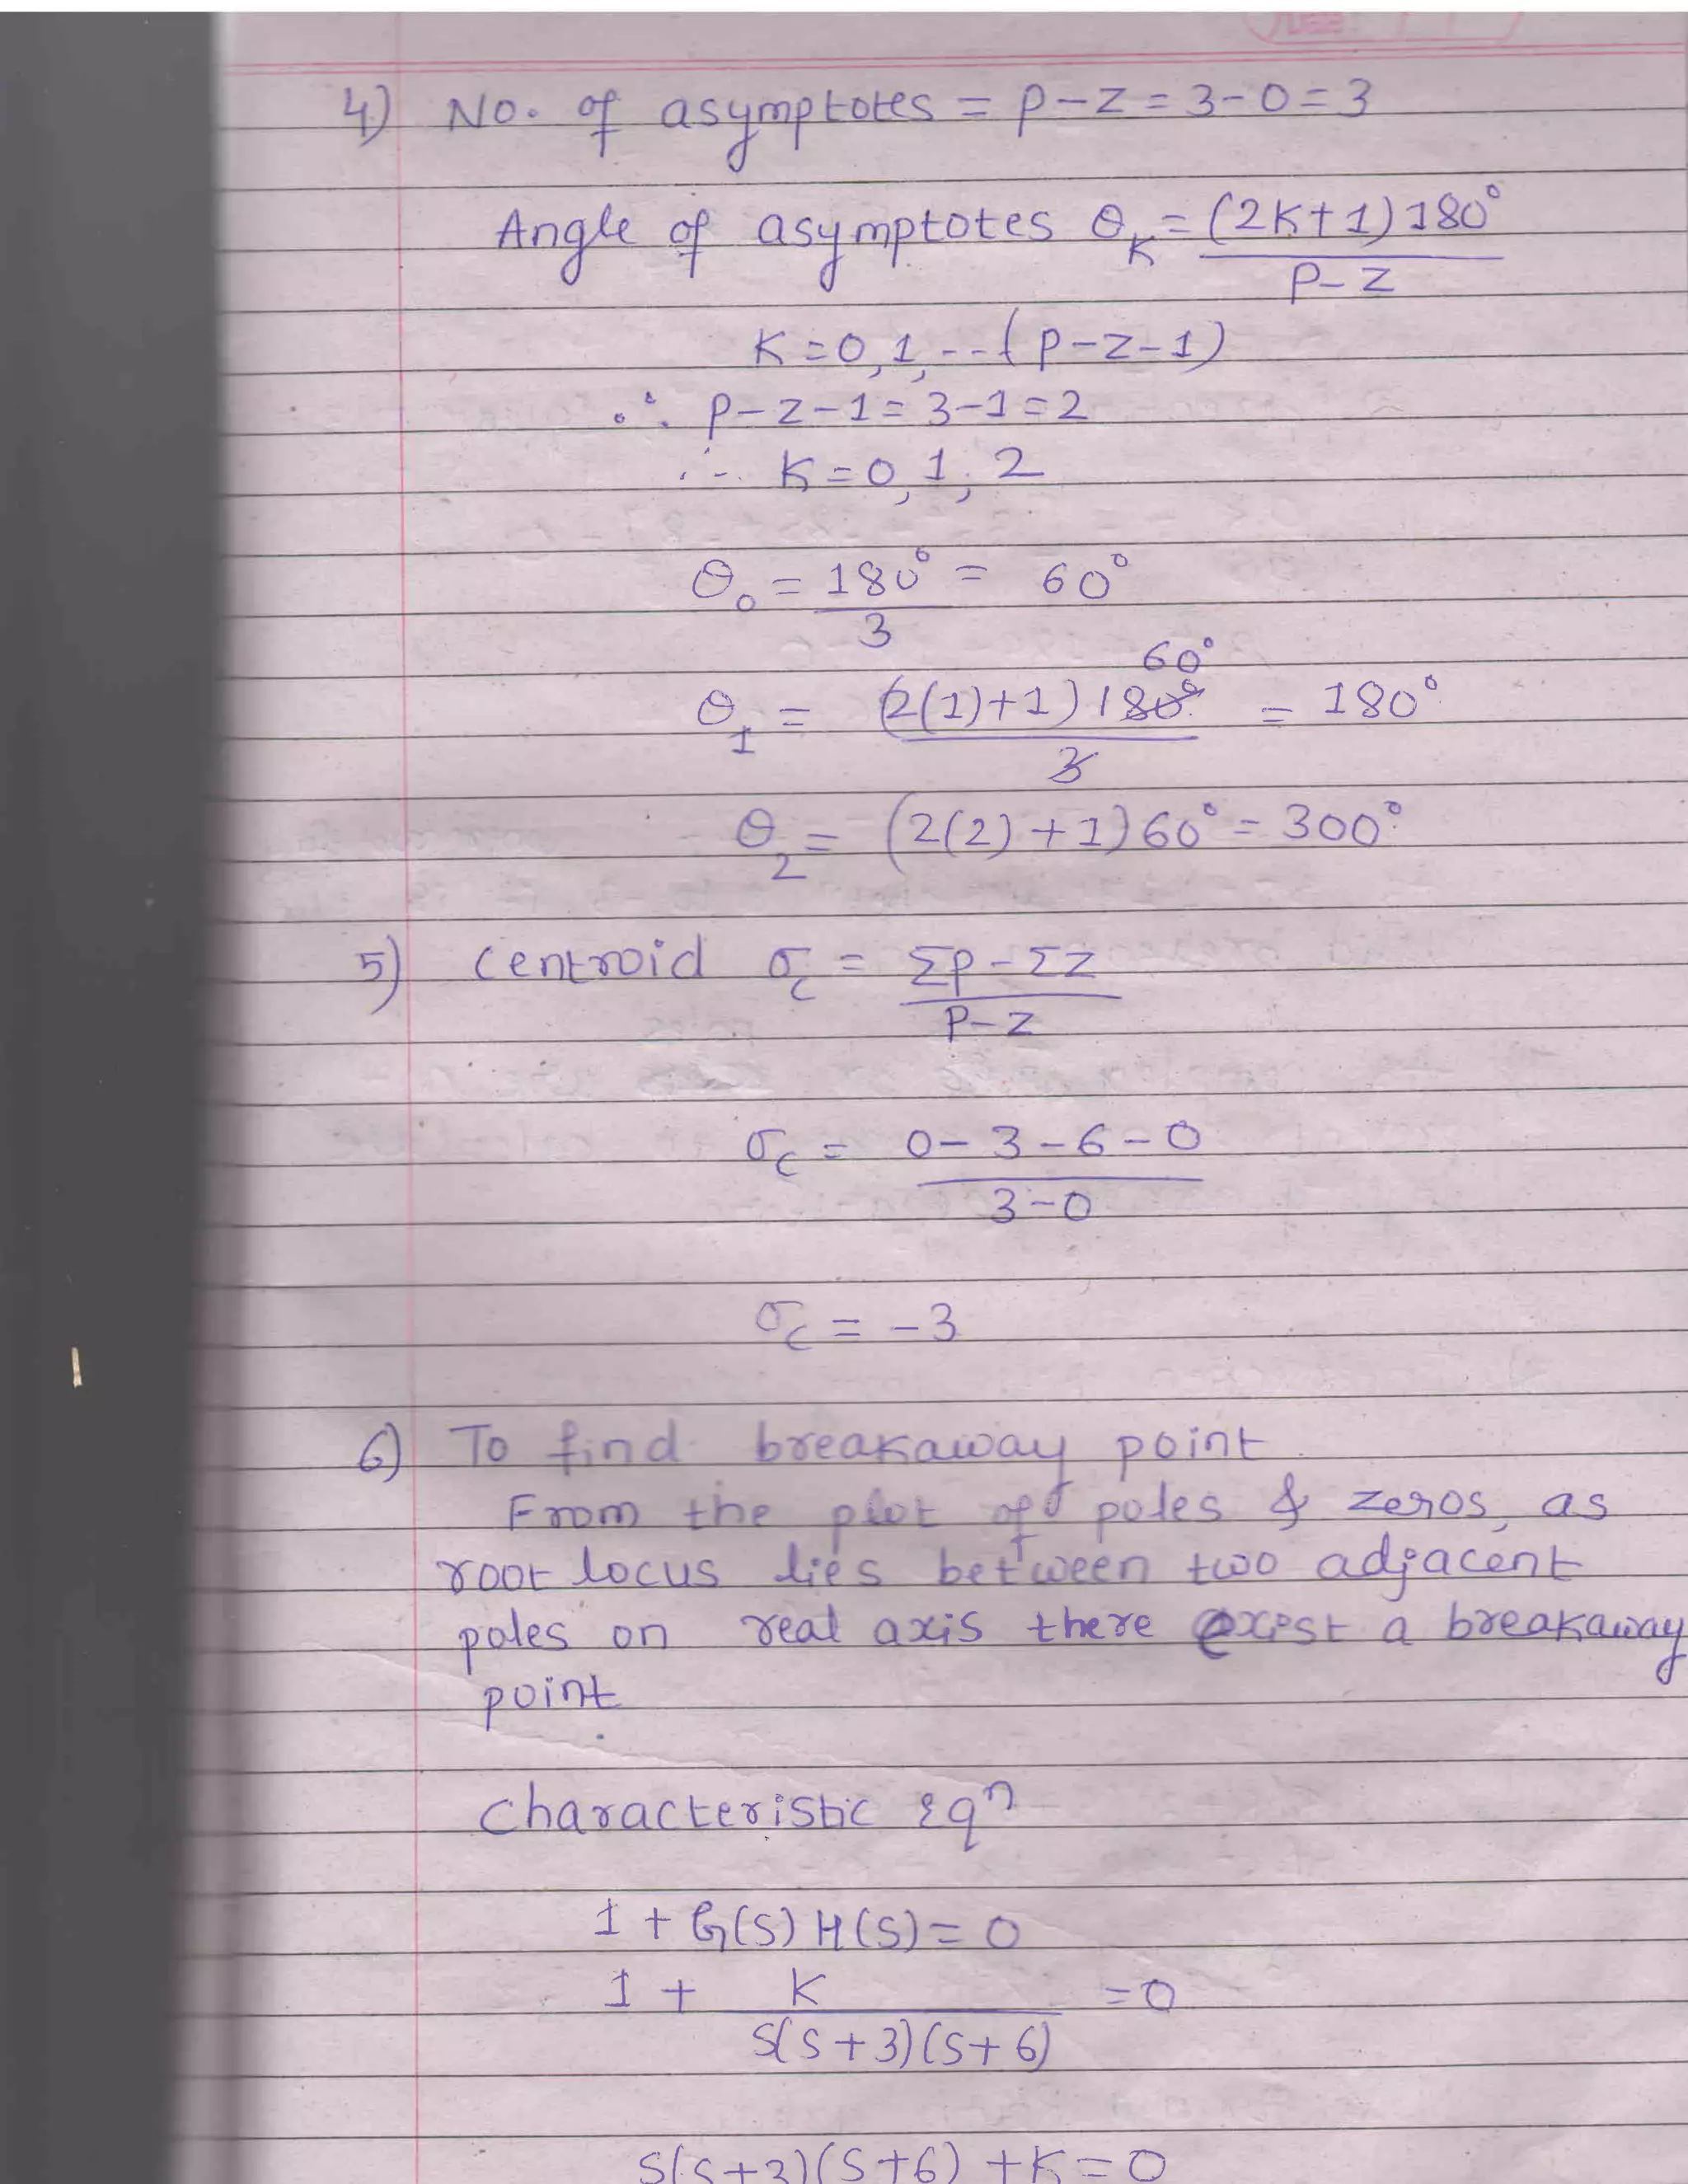 4) No. of asymptotes = P-Z = 3-0 = 3
Angle of asymptotes θ_K = (2K+1)180°
P-Z
K=0,1,--(P-Z-1)
∴ P-Z-1 = 3-1 = 2
∴ K=0,1,2
θ₀ = 180° = 60°
3
60°
θ₁ = (2(1)+1)180° = 180°
3
θ₂ = (2(2)+1)60° = 300°
5) Centroid σ_c = Σp-Σz
P-Z
σ_c = 0-3-6-0
3-0
σ_c = -3
6) To find breakaway point
From the plot of poles & zeros, as
root locus lies between two adjacent
poles on real axis there exist a breakaway
point
Characteristic Eqⁿ
1+G(S)H(S)=0
1+ K =0
S(S+3)(S+6)
S(S+3)(S+6)+K=0